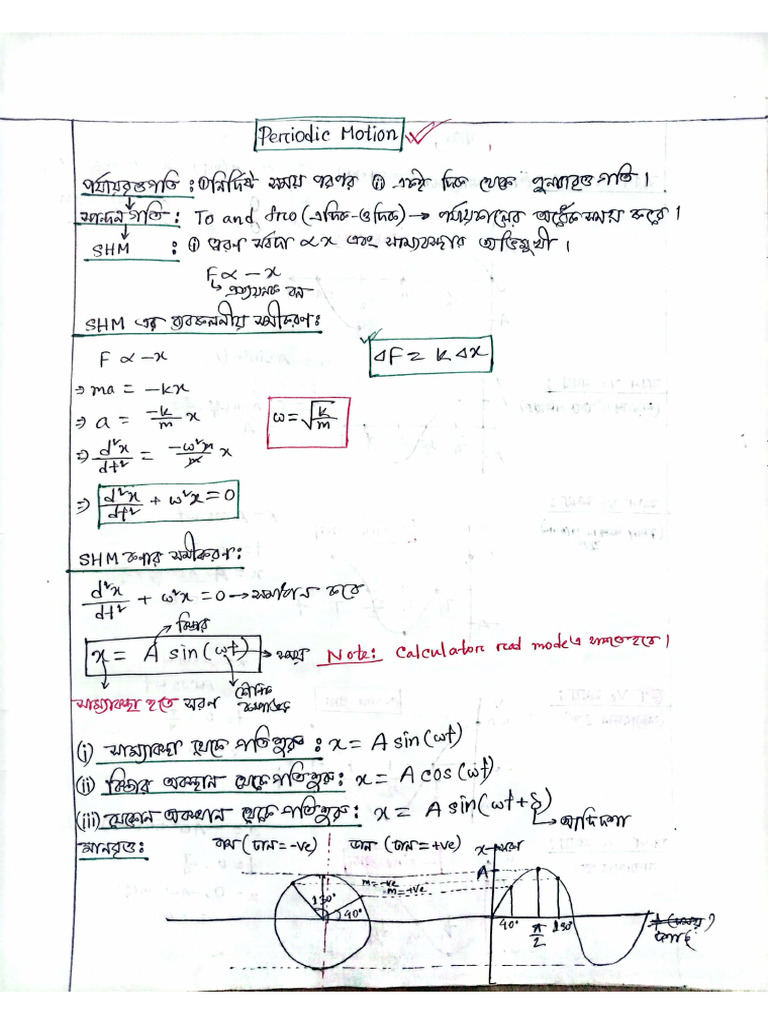 Periodic Motion
পর্যায়বৃত্তগতি : ⓘ নির্দিষ্ট সময় পরপর ⓘⓘ একই দিক থেকে পুনরাবৃত্ত গতি।
স্পন্দন গতি : To and fro (এদিক-ওদিক) → পর্যায়কালের অর্ধেক সময় করে।
SHM : ⓘ ত্বরণ সর্বদা ∝ x এবং সাম্যাবস্থার অভিমুখী।
F ∝ −x
↳ প্রত্যয়নক বল
SHM এর ব্যবকলনীয় সমীকরণঃ
F ∝ −x
ΔF = k Δx
⇒ ma = −kx
⇒ a = −k/m x
ω = √(k/m)
⇒ d²x/dt² = −ω²m/m x
⇒ d²x/dt² + ω²x = 0
SHM কণার সমীকরণঃ
d²x/dt² + ω²x = 0 → সমাধান করে
বিস্তার
x = A sin(ωt) → সময়
Note: Calculator rad mode এ থাকতে হবে।
সাম্যাবস্থা হতে সরণ
কৌণিক কম্পাঙ্ক
(i) সাম্যাবস্থা থেকে গতি শুরু : x = A sin(ωt)
(ii) বিস্তার অবস্থান থেকে গতি শুরু : x = A cos(ωt)
(iii) যেকোন অবস্থান থেকে গতি শুরু : x = A sin(ωt+δ)
↳ আদি দশা
মানবৃত্তঃ
বাম (ঢাল = -ve) ডান (ঢাল = +ve)
x-সরণ
A
m = -ve
m = +ve
130°
40°
40° π/2 130°
দশা